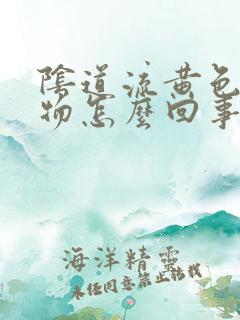 陰道流黃色
物怎麼回事
海洋精靈
未经同意禁止转载